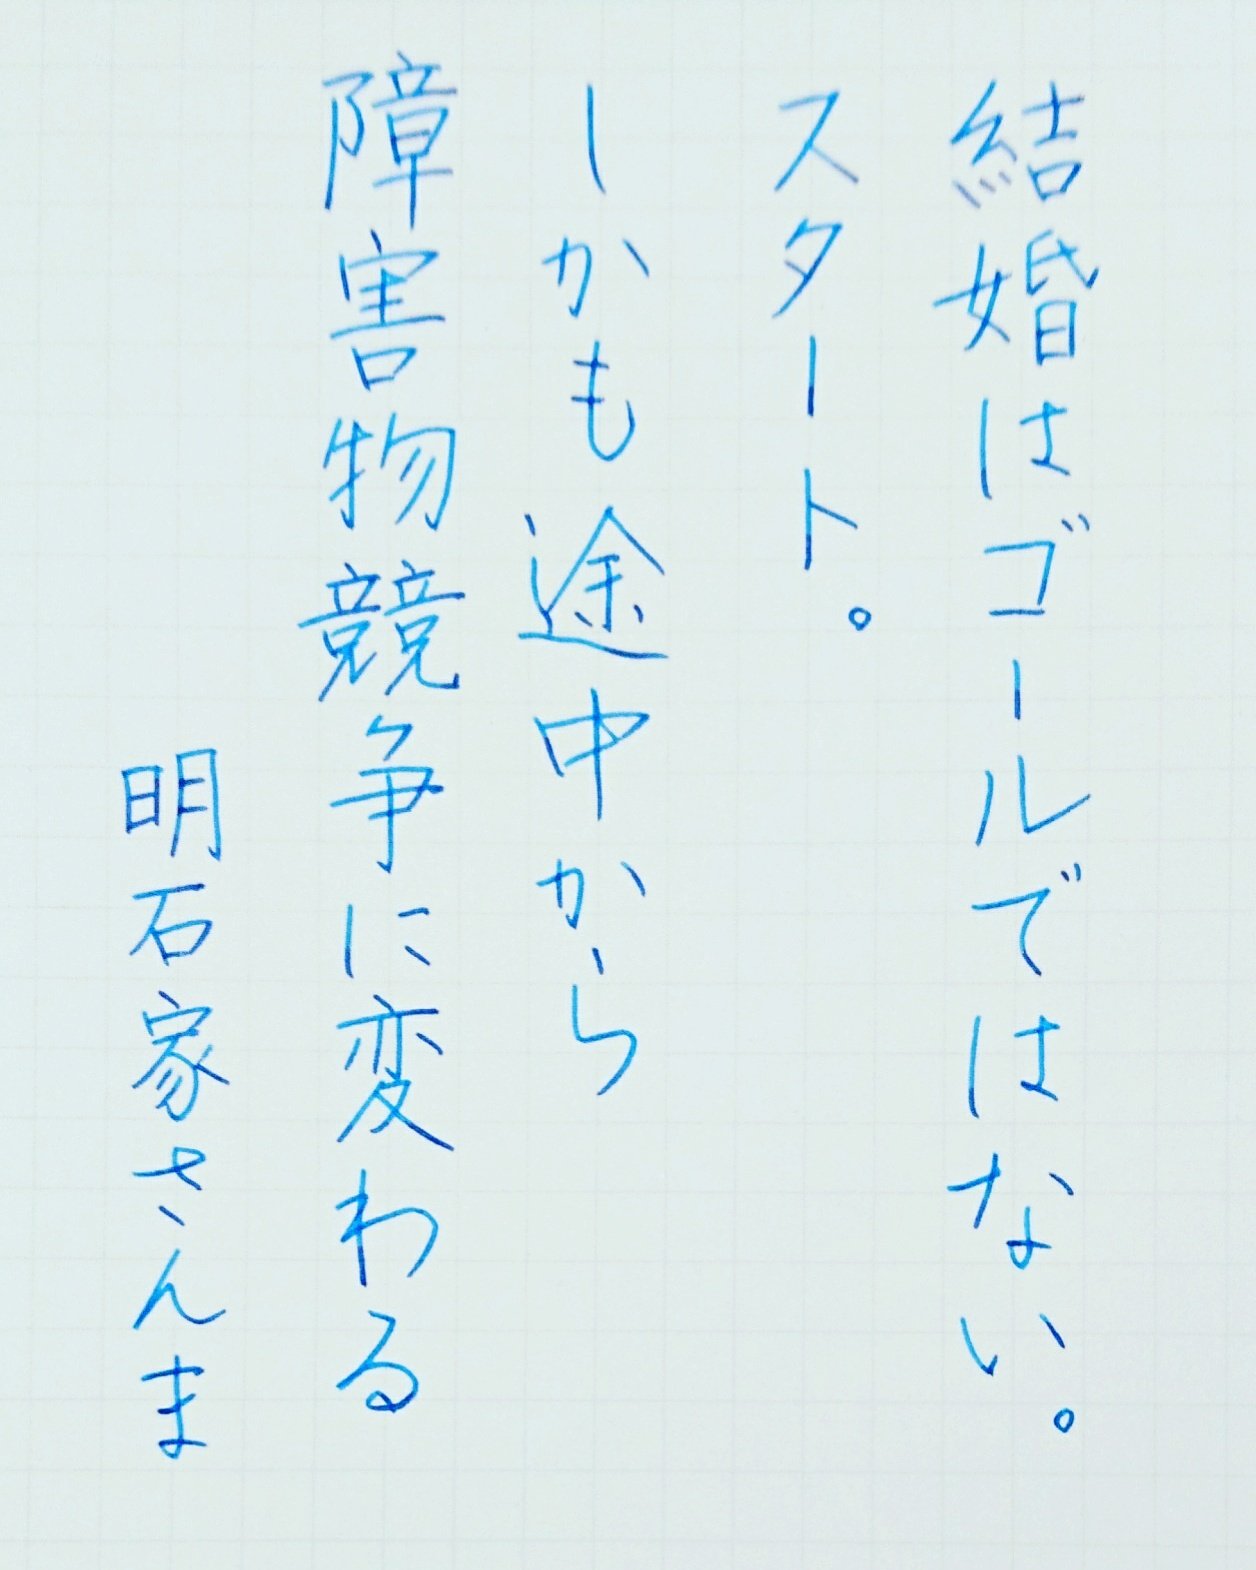 結婚はゴールではない。
スタート。
しかも途中から
障害物競争に変わる
明石家さんま